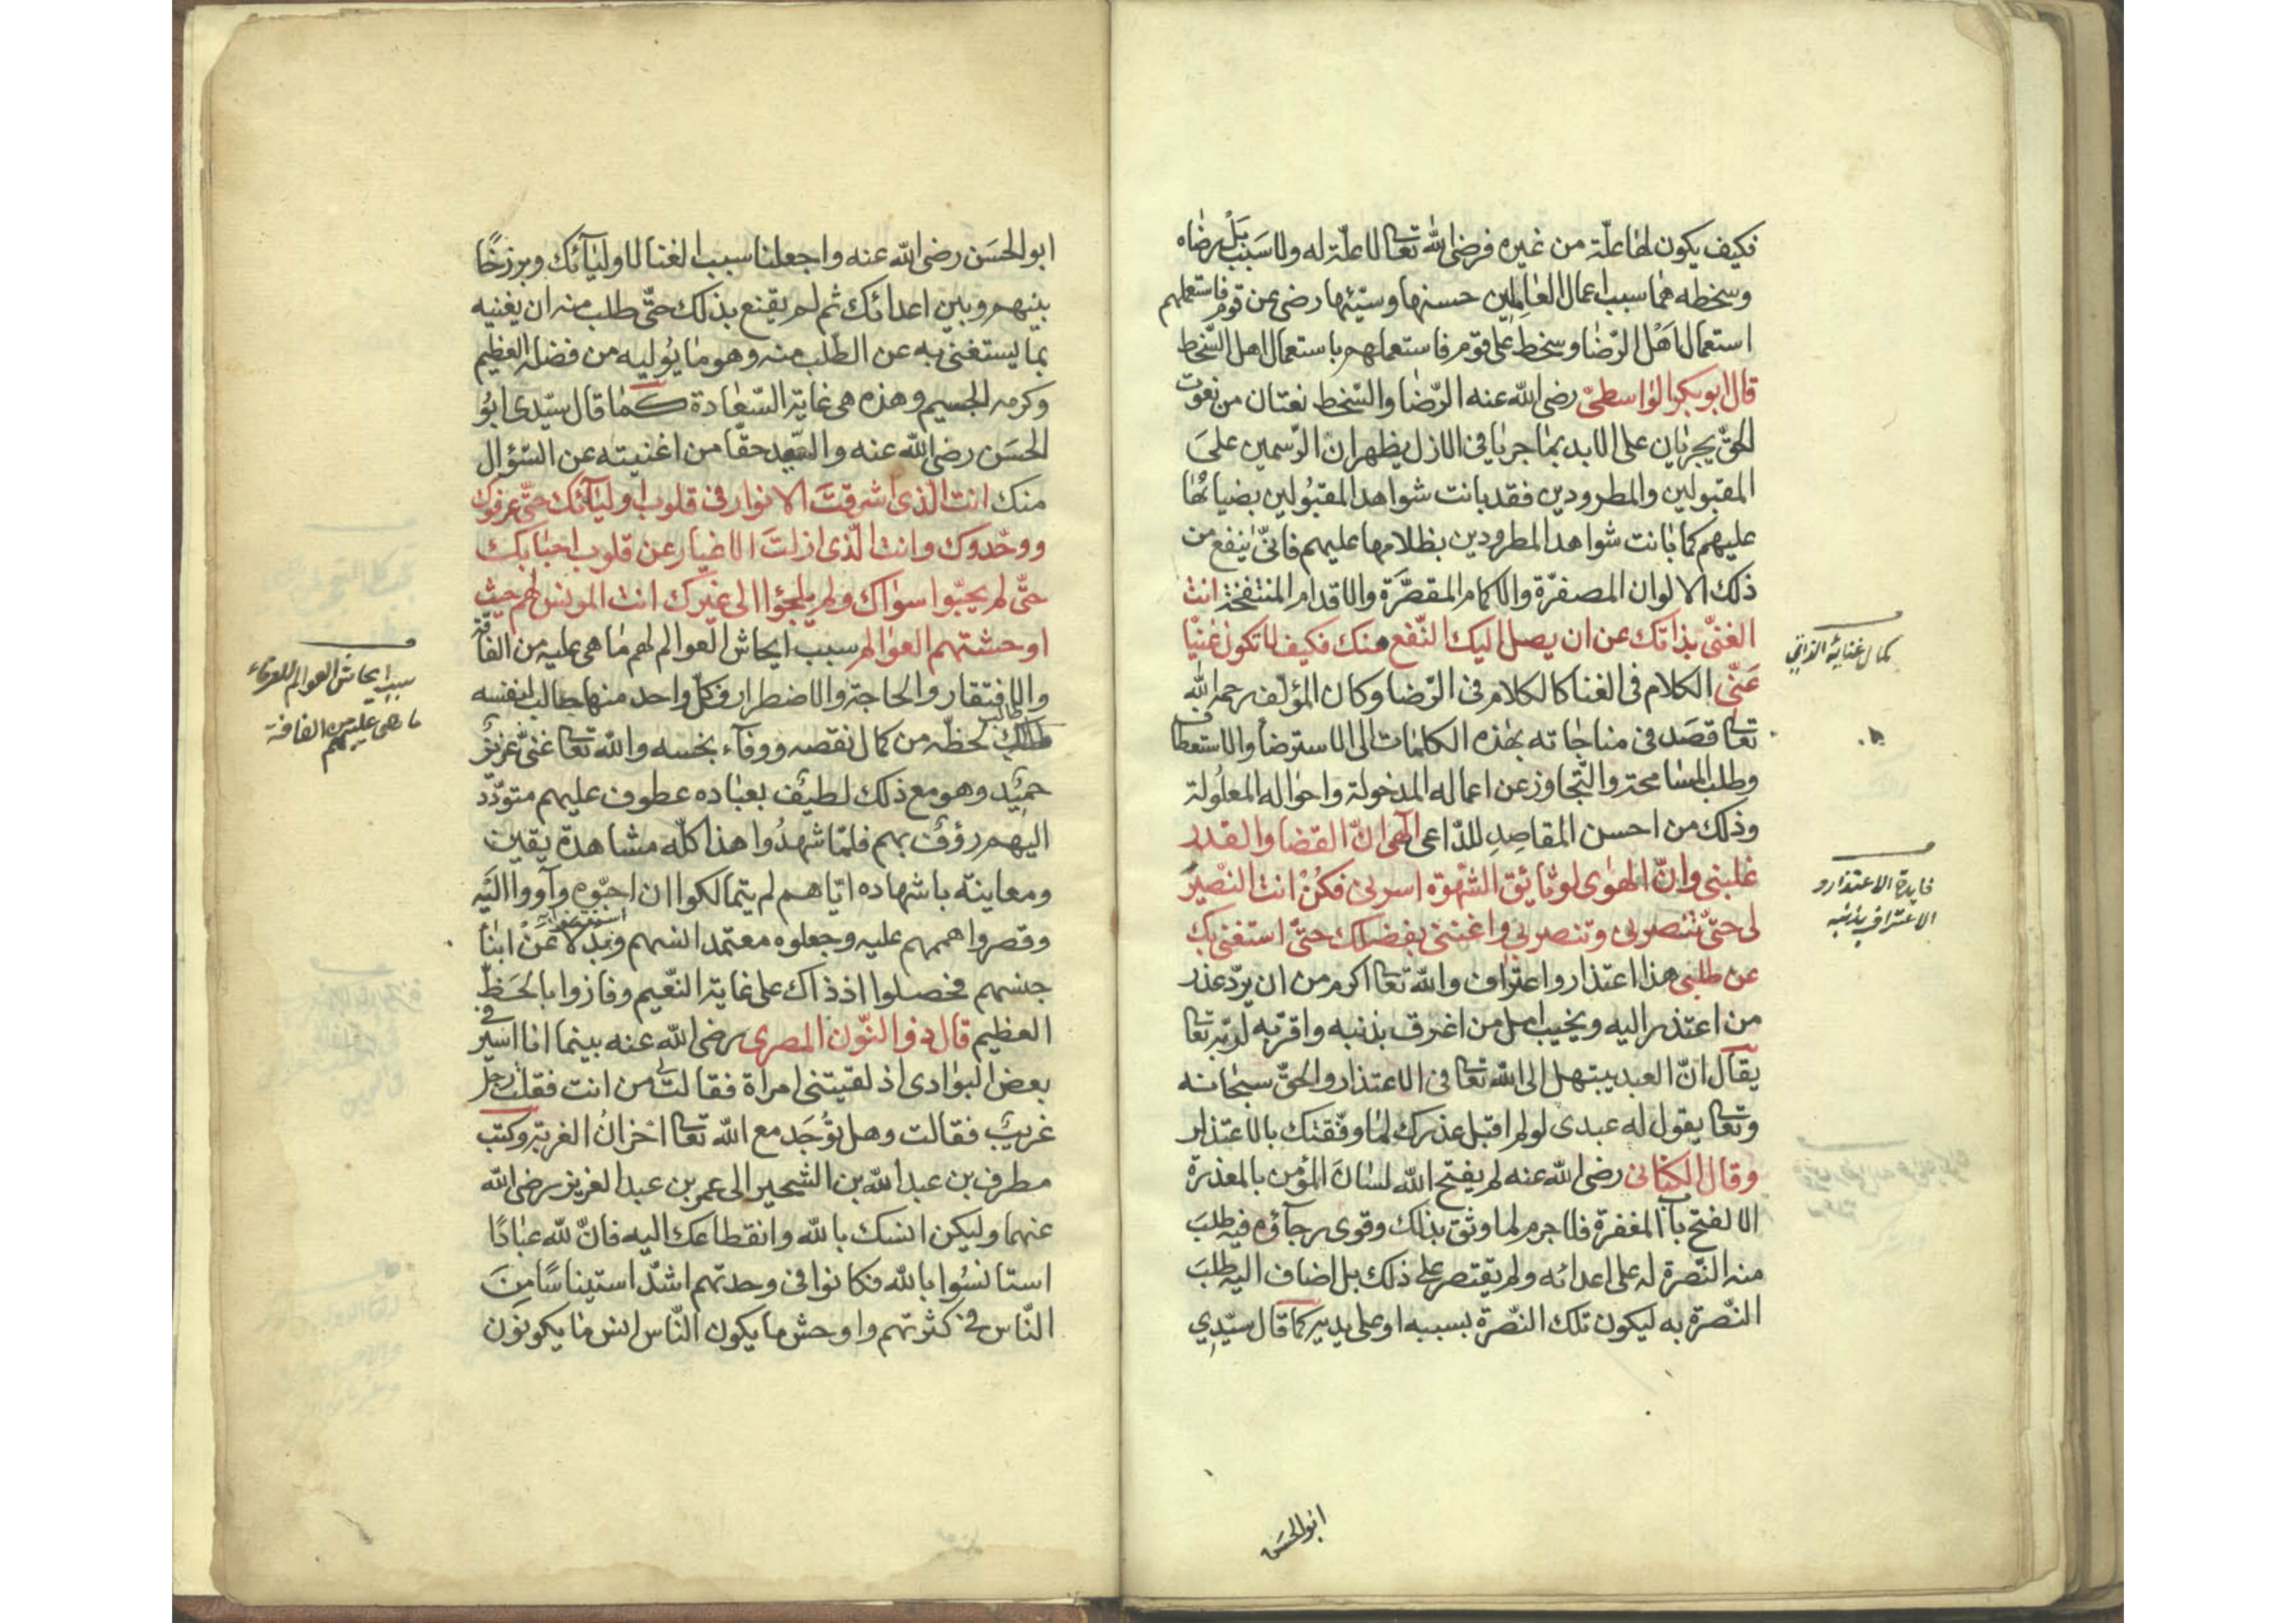 فكيف يكون لها علّة من غيره فرضى الله تعا لا علّة له ولا سبب بل رضاه
وسخطه هما سبب اعمال العاملين حسنها وسيّئها رضى عن قوم فاستعملهم
استعمال اهل الرّضا وسخط على قوم فاستعملهم باستعمال اهل السّخط
قال ابو بكر الواسطىّ رضى الله عنه الرّضا والسّخط نعتان من نعوت
الحقّ يجريان على الابد بما جريا فى الازل يظهران الرّسمين علىَ
المقبولين والمطرودين فقد بانت شواهد المقبُولين بضيائها
عليهم كما بانت شواهد المطرودين بظلامها عليهم فانّى ينفع من
ذلك الالوان المصفرّة والاكمام المقصّرَة والاقدام المنتفخة انت
الغنىّ بذاتك عن ان يصل اليك النّفع منك فكيف لا تكون غنيّا
عَنّى الكلام فى الغنا كالكلام فى الرّضا وكان المؤلّف رحمه الله
تعا قصَد فى مناجاته بهذه الكلمات الى الاسترضا والاستعطاف
وطلب المسامحة والتّجاوز عن اعماله المدخولة واحواله المعلُولة
وذلك من احسن المقاصِدِ للدّاعى الٓهى انّ القضا والقدر
غلبنى وانّ الهوٰى لوثائق الشّهوَة اسرنى فكُنْ انت النّصْيرَ
لى حتّى تنصرنى وتنصر بى واغننى بفضلك حتّى استغنى بك
عن طلبى هذا اعتذار واعتراف والله تعا اكرم من ان يردّ عذر
من اعتذر اليه ويخيب امل من اعترف بذنبه واقرّ به لربّه تعا
يقال انّ العبد يبتهل الى الله تعا فى الاعتذار والحقّ سبحانه
وتعا يقول له عبدى لو لم اقبل عذرك لما وفّقتك بالاعتذار
وقال الكتانى رضى الله عنه لم يفتح الله لسَان المؤمن بالمعذرة
الا لفتح باب المغفرة فلا جرم لما وثق بذلك وقوى رجآؤه فيه طلبَ
منه النّصرة له على اعدائه ولم يقتصر على ذلك بل اضاف اليه طلبَ
النّصرة به ليكون تلك النّصرة بسببه او على يديه كما قال سيّدِي
ابو الحسَن
كمال غنايه الذاتي
فايدة الاعتذار و
الاعتراف بذنبه
ابو الحسَن رضى الله عنه واجعلنا سبب الغنا لاوليآئك وبرزخًا
بينهم وبين اعدائك ثم لم يقنع بذلك حتّى طلب منه ان يغنيه
بما يستغنى به عن الطّلب منه وهو ما يُوليه من فضله العظيم
وكرمه الجسيم وهذه هى غاية السّعادة كما قال سيّدى ابوُ
الحسَن رضى الله عنه والسّعيد حقّا من اغنيته عن السّؤال
منك انت الّذى اشرقتَ الانوار فى قلوب اوليآئك حتّى عرفوك
ووحّدوك وانت الّذى ازلتَ الاغيار عن قلوب احبابك
حتّى لم يحبّوا سواك ولم يلجؤا الى غيرك انت المونس لهم حيث
اوحشتهم العوالم سبب ايحاش العوالم لهم ما هى عليه من الفاقة
والافتقار والحاجة والاضطرار وكلّ واحد منها طالب لنفسه
طالب لحظّه من كمال نقصه ووفآء بخسه والله تعا غنىّ عزيزٌ
حميٌد وهو مع ذلك لطيٌف بعباده عطوف عليهم متودّد
اليهم رؤوف بهم فلمّا شهدُوا هذا كلّه مشاهدة يقين
ومعاينة باشهاده ايّاهم لم يتمالكوا ان احبّوه وآووا اليَه
وقصروا هممهم عليه وجعلوه معتمد انسهم وبدلا عن ابنآ
جنسهم فحصلوا اذ ذاك على غاية النّعيم وفازوا بالحَظّ
العظيم قال ذو النّون المصرى رضى الله عنه بينما انا اسير فى
بعض البوادى اذ لقيتنى امراة فقالت لى من انت فقلت رجل
غريبٌ فقالت وهل توُجَد مع الله تعا احزانُ الغربة وكتب
مطرف بن عبد الله بن الشّخير الى عمر بن عبد العزيز رضى الله
عنهما وليكن انسك بالله وانقطاعك اليه فانّ لله عبادًا
استانسُوا بالله فكانوا فى وحدتهم اشدّ استيناسًا مِنَ
النّاس فى كثرتهم واوحش ما يكون النّاس انس ما يكونوَن
سبب ايحاش العوالم للعرفاء
ما هى عليه من الفاقة